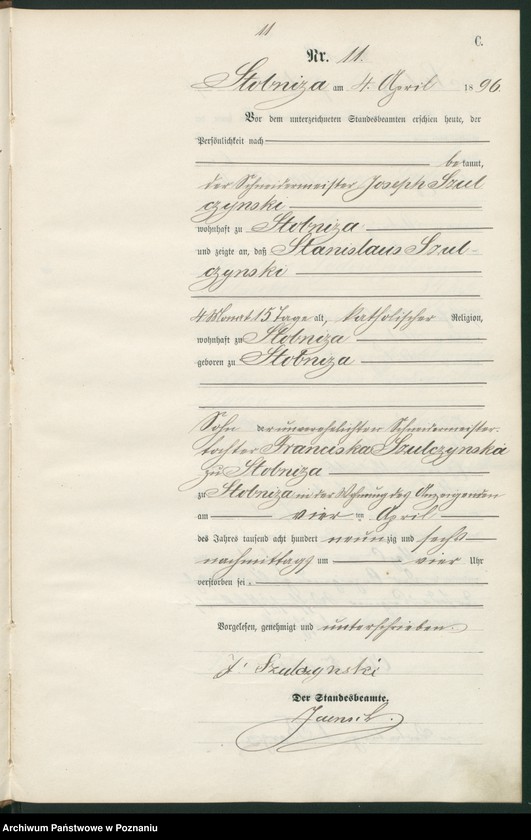 11
C.
Nr. 11.
Stobniza am 4. April 1896.
Vor dem unterzeichneten Standesbeamten erschien heute, der
Persönlichkeit nach
bekannt,
der Schneidermeister Joseph Szul
czynski
wohnhaft zu Stobniza
und zeigte an, daß Stanislaus Szul-
czynski
4 Monat 15 Tage alt, katholischer Religion,
wohnhaft zu Stobniza
geboren zu Stobniza
Sohn der unverehelichten Schneidermeister-
tochter Franciska Szulczynska
zu Stobniza
zu Stobniza in der Wohnung des Anzeigenden
am vier ten April
des Jahres tausend acht hundert neunzig und sechs
nachmittags um vier Uhr
verstorben sei.
Vorgelesen, genehmigt und unterschrieben.
J. Szulczynski
Der Standesbeamte.
Archiwum Państwowe w Poznaniu